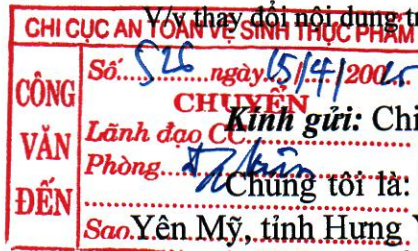 V/v thay đổi nội dung t
CHI CỤC AN TOÀN VỆ SINH THỰC PHẨM
CÔNG VĂN ĐẾN
Số: 526 ngày 15/4/2025
CHUYỂN
Lãnh đạo CC
Kính gửi: Chi
Phòng
Chúng tôi là:
Sao Yên Mỹ, tỉnh Hưng